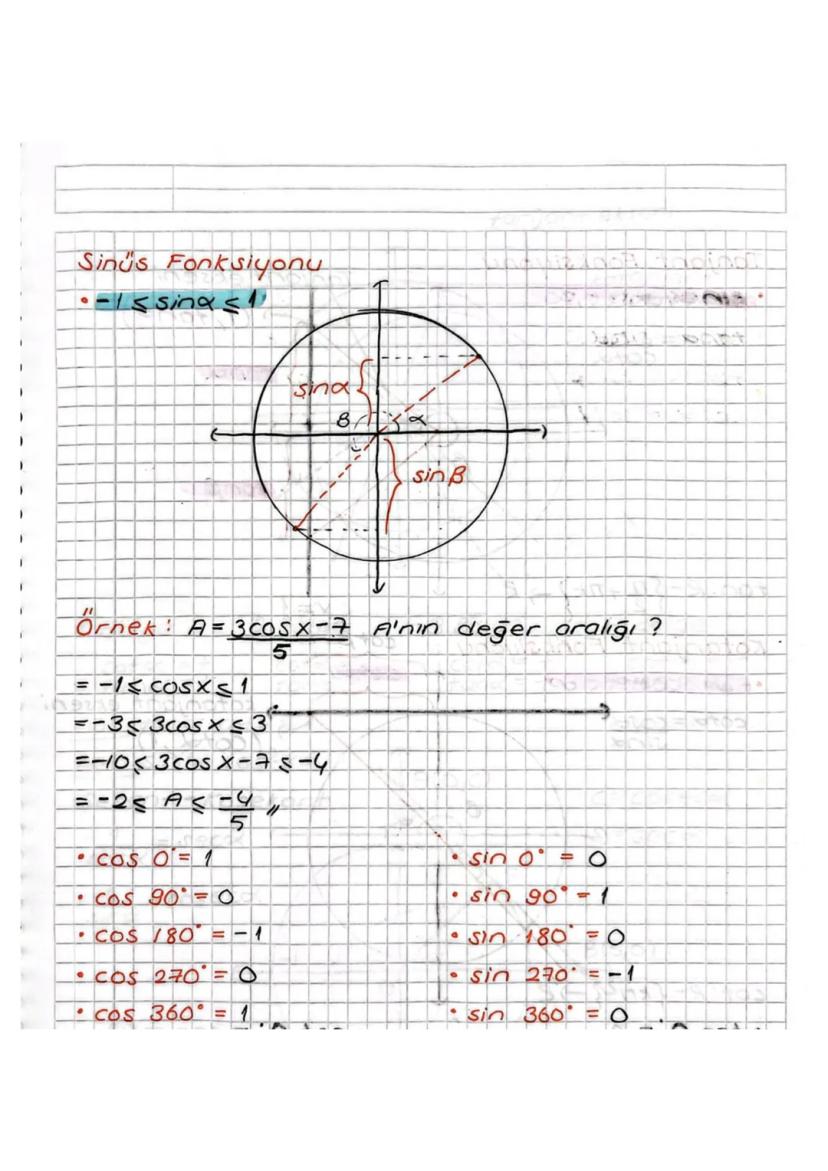 Sinüs Fonksiyonu
• -1 ≤ sinα ≤ 1
sinα
β
α
sinβ
Örnek: A = 3cosx-7 / 5 A'nın değer aralığı?
= -1 ≤ cosx ≤ 1
= -3 ≤ 3cosx ≤ 3
= -10 ≤ 3cosx-7 ≤ -4
= -2 ≤ A ≤ -4/5 //
• cos 0° = 1
• cos 90° = 0
• cos 180° = -1
• cos 270° = 0
• cos 360° = 1
• sin 0° = 0
• sin 90° = 1
• sin 180° = 0
• sin 270° = -1
• sin 360° = 0